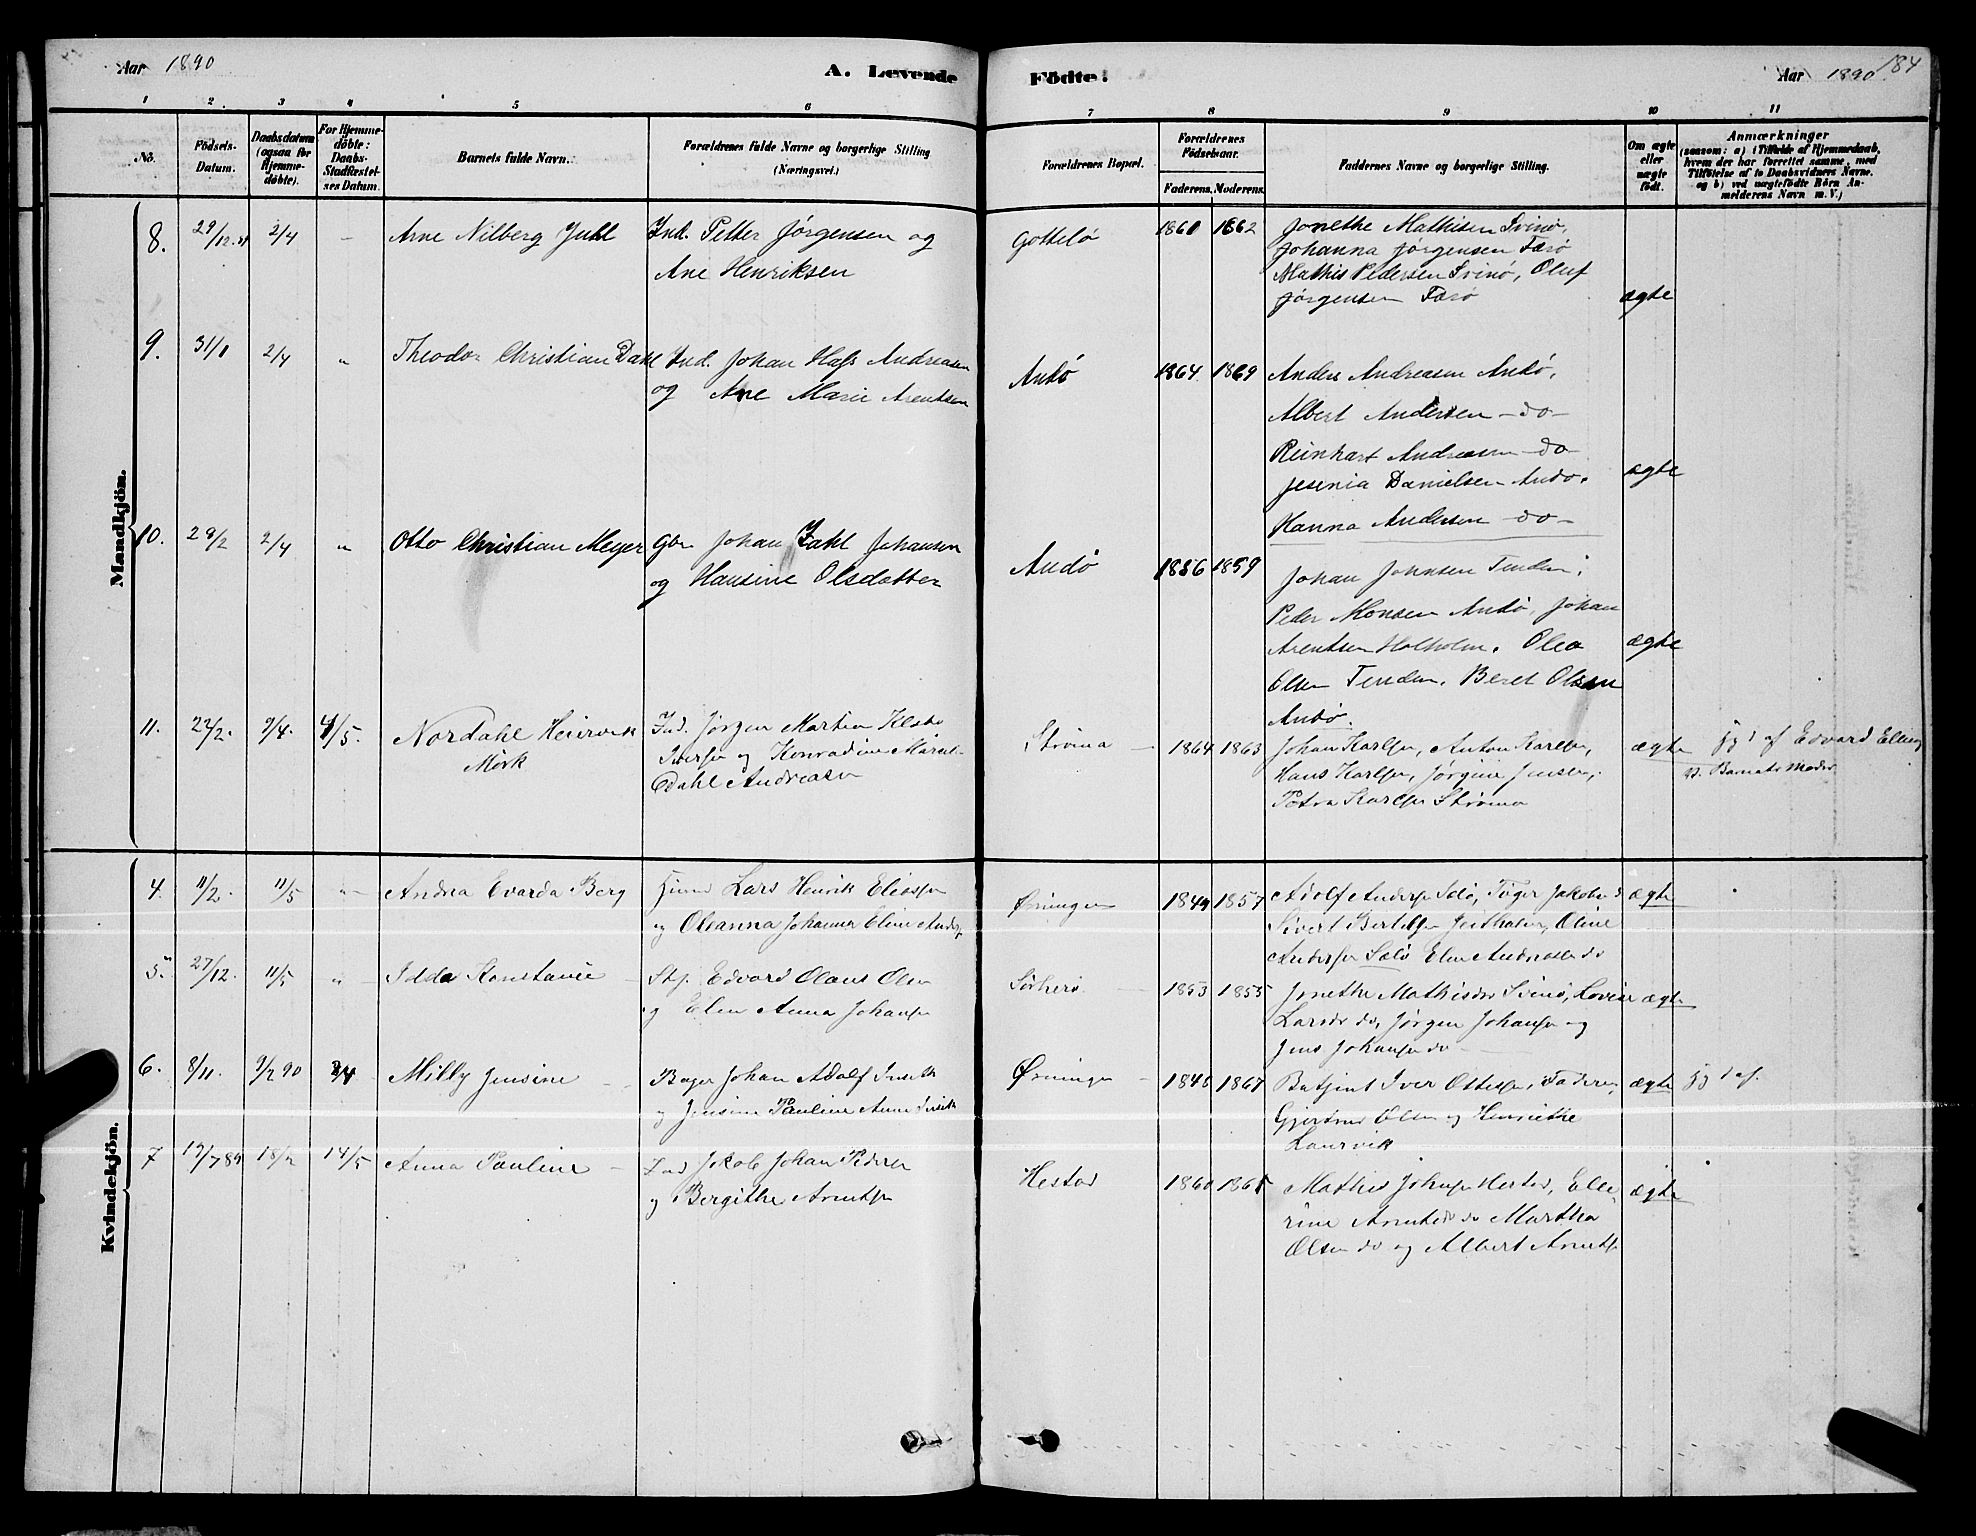 Aar 1890
A. Levende Födte.
Aar 1890
184
1 2 3 4 5 6 7 8 9 10 11
No.
Födsels-Datum.
Daabsdatum (ogsaa for Hjemmedöbte).
For Hjemmedöbte: Daabs-Stadfæstelses Datum.
Barnets fulde Navn.
Forældrenes fulde Navne og borgerlige Stilling
(Næringsvei.)
Forældrenes Bopæl.
Forældrenes Födselsaar.
Faderens. Moderens.
Faddernes Navne og borgerlige Stilling.
Om ægte eller uægte født.
Anmærkninger
(saasom: a) i Tilfælde af Hjemmedaab,
hvem der har forrettet samme, med
Tilföielse af to Daabsvidners Navne.
og b) ved uægtefödte Börn An-
melderens Navn m. V.)
Mandkjön.
8. 29/12 2/4 - Arne Nilberg Juhl
Ind. Petter Jørgensen og
Ane Henriksen
Gotteló 1860 1862
Jonethe Mathisen Svinø,
Johanna Jørgensen Færø
Mathis Pedersen Svinø, Oluf
Jørgensen Færø
ægte
9. 31/1 2/4 " Theodor Christian Dahl
Ind. Johan Hass Andreasen
og Ane Marie Arentsen
Andø 1864 1869
Anders Andreasen Andø,
Albert Andersen -do-
Reinhart Andreasen -do-
Jesenia Danielsen Andø.
Hanna Andersen -do-
ægte
10. 29/2 2/4 " Otto Christian Meyer
Gbr Johan Zahl Johansen
og Hansine Olsdatter
Andø 1856 1859
Johan Johnsen Tenden,
Peder Monsen Andø, Johan
Arentsen Holholm. Olea
Olsen Tenden. Beret Olsen
Andø.
ægte
11. 22/2. 2/4. 4/5. Nordahl Heiervik
Mörk
Ind. Jørgen Martin
Iversen og Konradine Maren
Dahl Andreasen
Strøma - 1864 1863
Johan Karlsen, Anton Karlsen,
Hans Karlsen, Jørgine Jensen,
Petra Karlsen Strøma
ægte
af Edvard
Barnets Moder
Kvindekjön.
4. 11/2. 11/5 " Andrea Evarda Berg
Lars Henrik Eliassen
og Oleanna Johanna Eline Anders
Øningen 1849 1857
Adolf Andersen Sølø, Jakobsen
Sivert Bertelsen, Oline
Andersen Sølø Elen Andreasen do
ægte
5. 27/12. 11/5 " Idda Konstanse -
Edvard Olaus Olsen
og Elen Anna Johansen
Sørherø - 1853 1855
Jonethe Mathisdr Svinø, Lovise
Larsdr do, Jørgen Johansen og
Jens Johansen do
ægte
6. 8/11. 9/2 90 2/4 Milly Jensine -
Bager Johan Adolf
og Jensine Pauline Anne
Øningen - 1848 1867
Iver Ottesen, Faderen
Gjertrud Olsen og Henriethe
Laurvik
ægte
7 19/7 89 18/2 14/5 Anna Pauline -
Ind Jakob Johan Pedersen
og Bergithe Arntsen
Hestad 1860 1865
Mathis Johnsen Hestad, Elle-
rine Arntsdr do Martha
Olsen do og Albert Arntsen
ægte